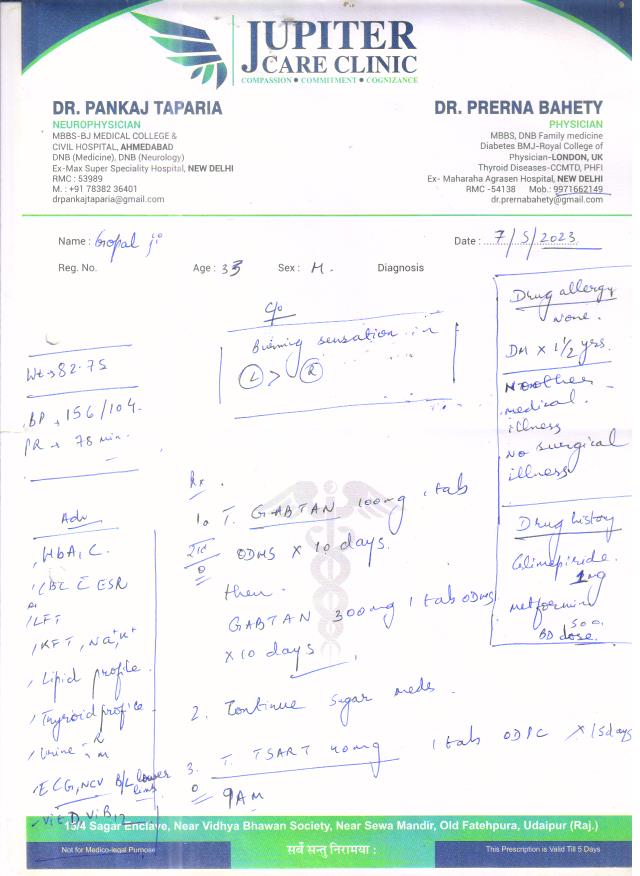 JUPITER
CARE CLINIC
COMPASSION • COMMITMENT • COGNIZANCE
DR. PANKAJ TAPARIA
NEUROPHYSICIAN
MBBS-BJ MEDICAL COLLEGE &
CIVIL HOSPITAL, AHMEDABAD
DNB (Medicine), DNB (Neurology)
Ex-Max Super Speciality Hospital, NEW DELHI
RMC : 53989
M. : +91 78382 36401
drpankajtaparia@gmail.com
DR. PRERNA BAHETY
PHYSICIAN
MBBS, DNB Family medicine
Diabetes BMJ-Royal College of
Physician-LONDON, UK
Thyroid Diseases-CCMTD, PHFI
Ex- Maharaha Agrasen Hospital, NEW DELHI
RMC -54138 Mob.: 9971662149
dr.prernabahety@gmail.com
Name : Gopal ji
Date : 7/5/2023
Reg. No. Age : 33 Sex : M. Diagnosis
c/o
Burning sensation in
L > R
Wt → 82.75
BP → 156/104.
PR → 78 min.
Drug allergy
None.
DM x 1 1/2 yrs.
No other
medical
illness
No surgical
illness
Drug history
Glimepiride
1mg
metformin
500
BD dose.
Adv
HbA1C.
CBC c̄ ESR
LFT
KFT, Na+, K+
Lipid profile
Thyroid profile
Urine - R
m
ECG, NCV B/L lower
limb
Vit D, Vit B12
Rx
1. T. GABTAN 100mg 1 tab
ODHS x 10 days.
then
GABTAN 300mg 1 tab ODHS
x 10 days
2. Continue sugar meds.
3. T. TSART 40mg 1 tab ODPC x 15 days
9AM
15/4 Sagar Enclave, Near Vidhya Bhawan Society, Near Sewa Mandir, Old Fatehpura, Udaipur (Raj.)
Not for Medico-legal Purpose
सर्वे सन्तु निरामया :
This Prescription is Valid Till 5 Days